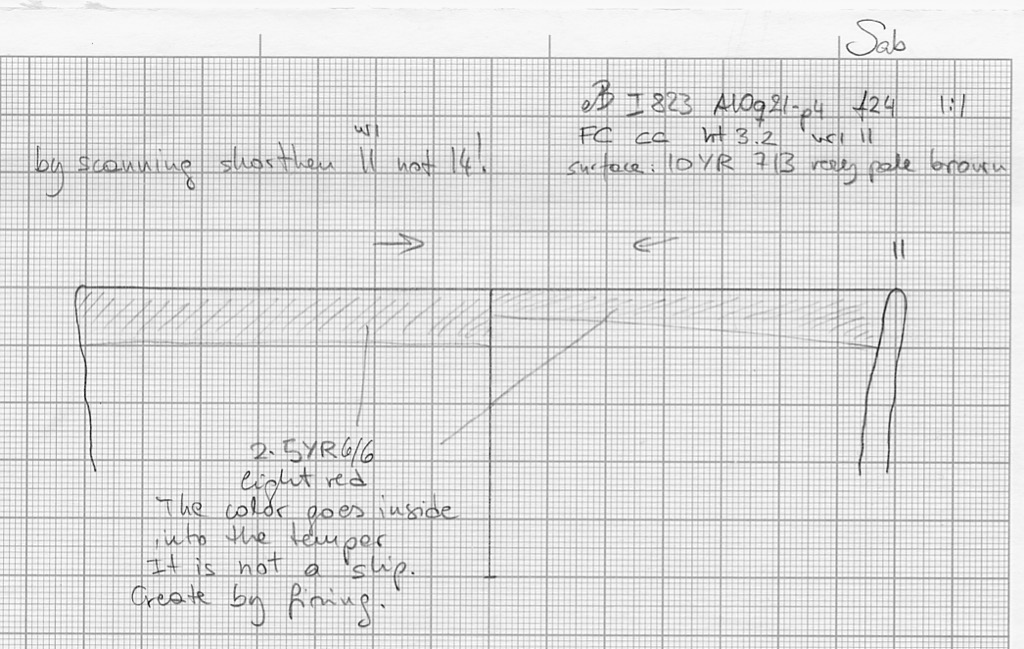 Sab
I 823 A10q21-p4 f24 1:1
FC cc ht 3.2 wi 11
surface: 10 YR 7/3 very pale brown
wi
by scanning shorthen 11 not 14!
11
2.5YR 6/6
light red
The color goes inside
into the temper
It is not a slip.
Create by firing.